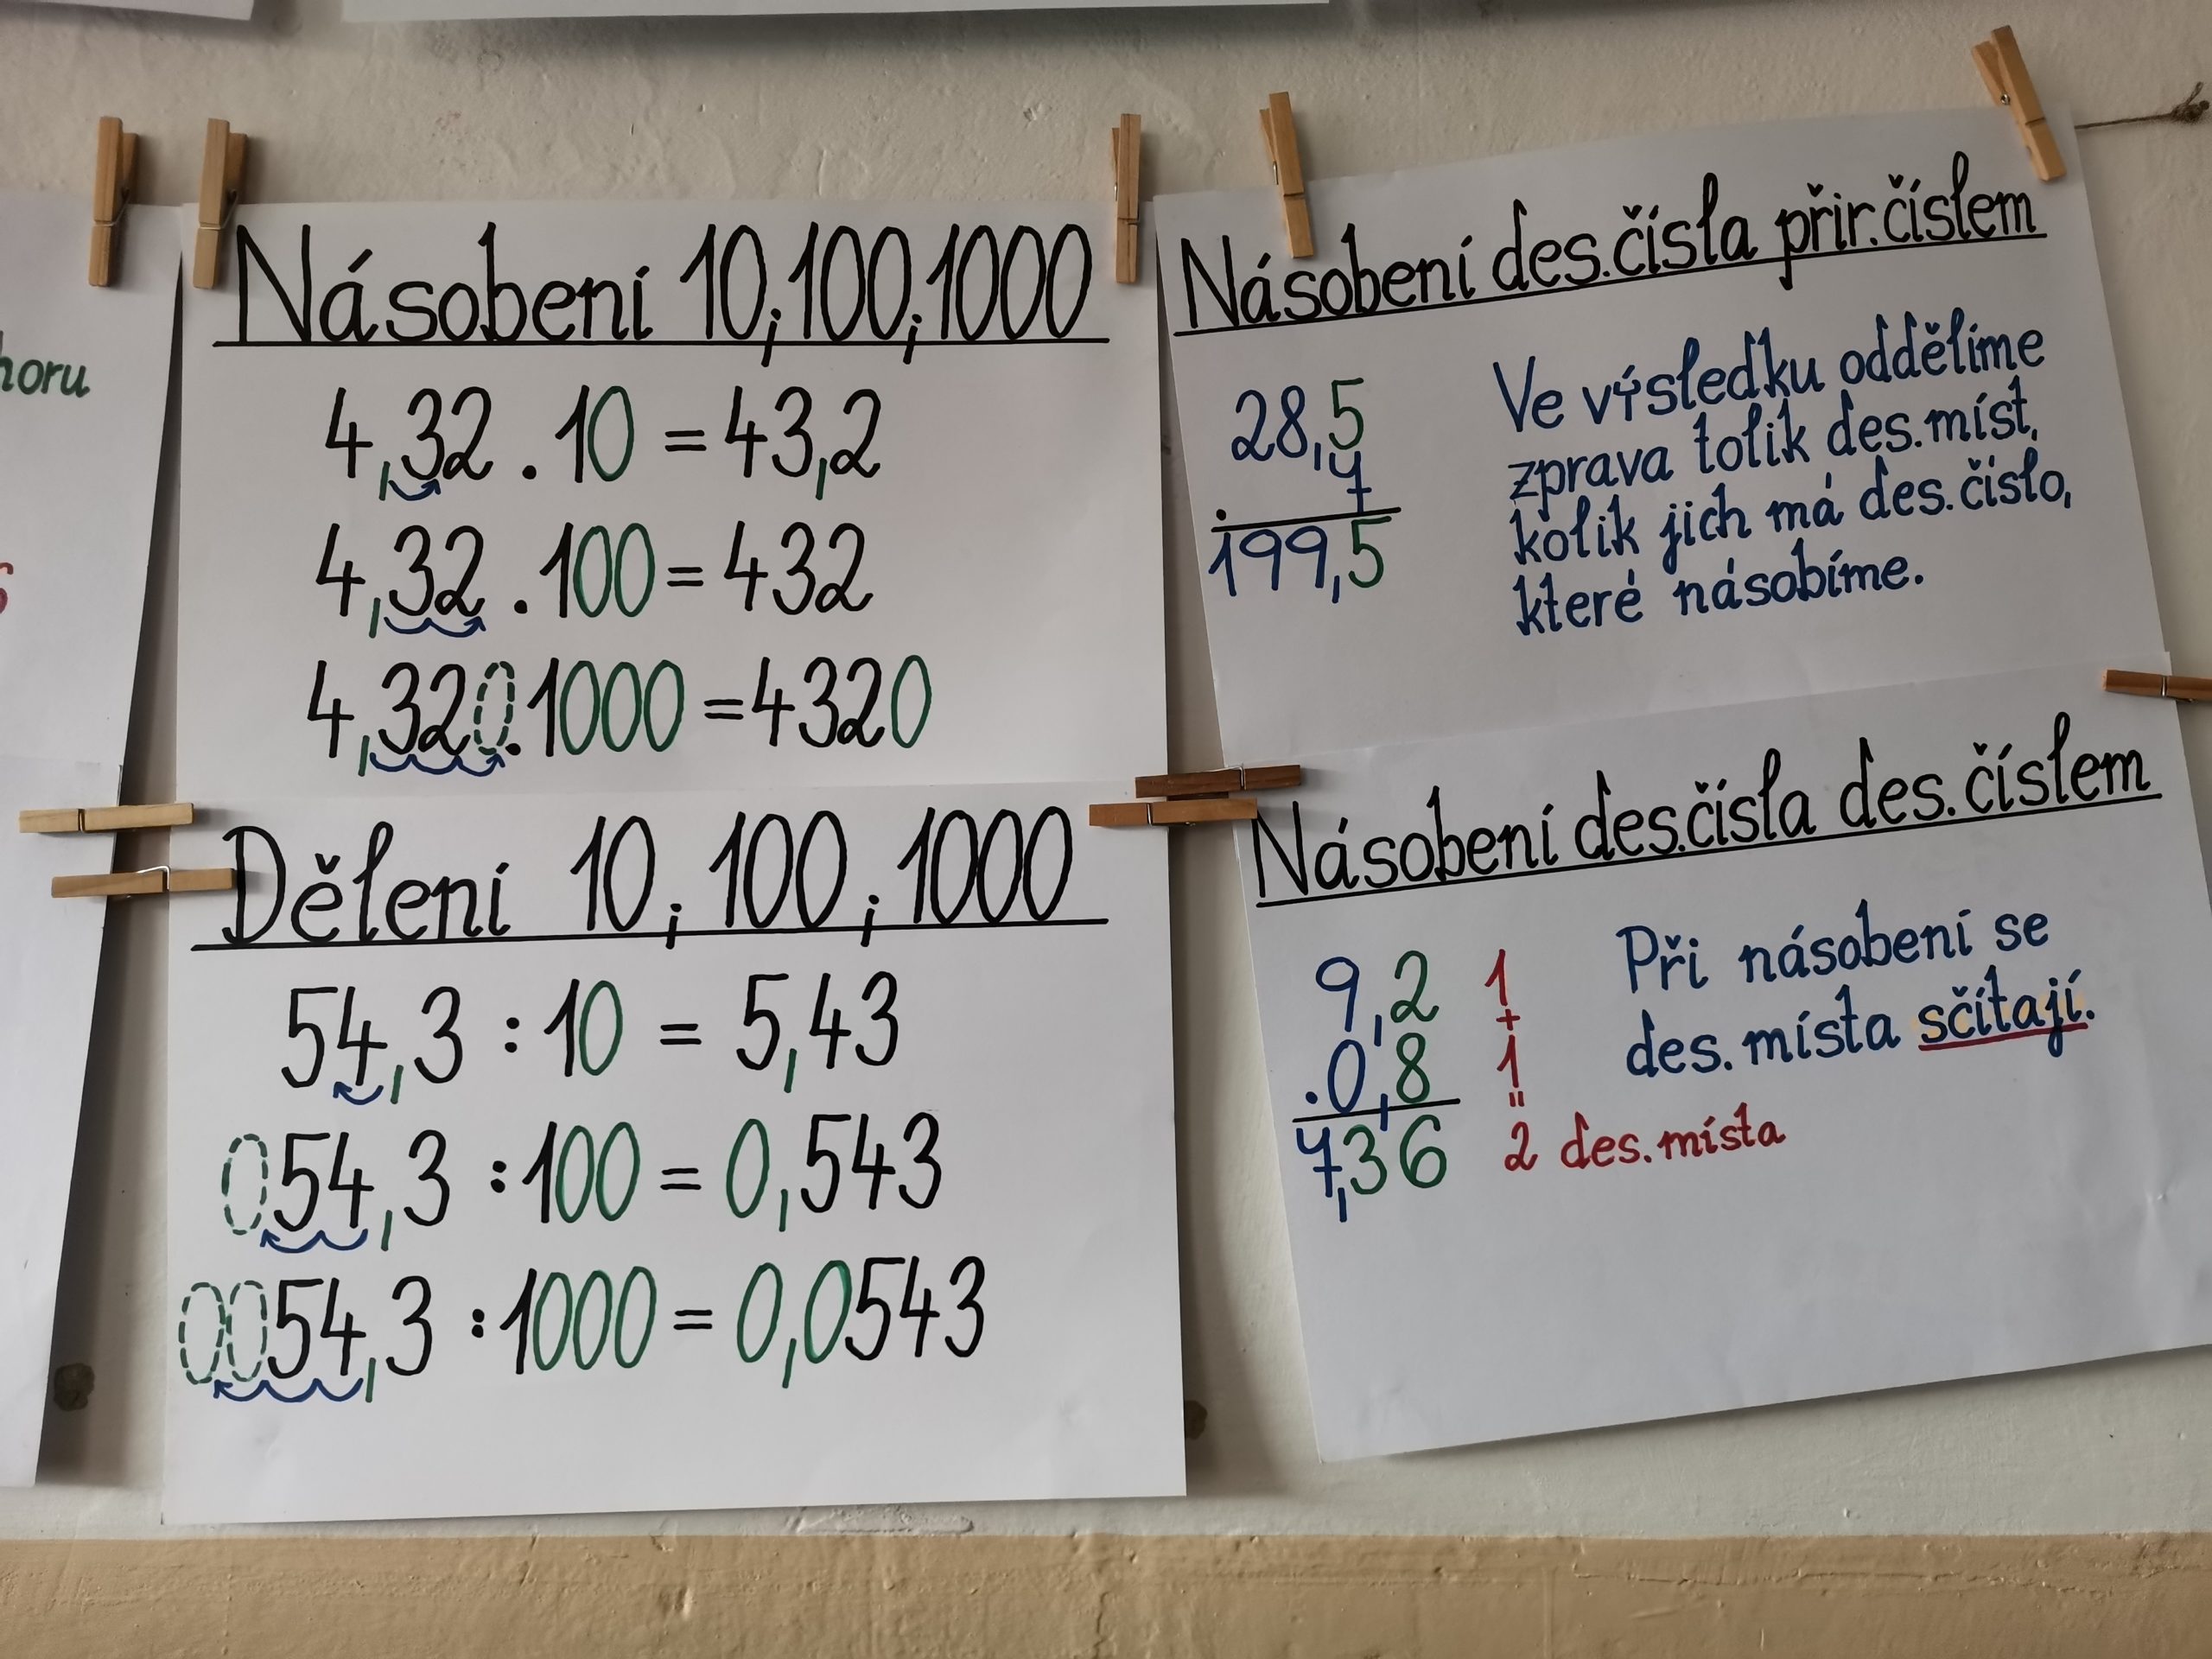 horu
Násobení 10;100;1000
4,32 . 10 = 43,2
4,32 . 100 = 432
4,320 . 1000 = 4320
Dělení 10; 100; 1000
54,3 : 10 = 5,43
054,3 : 100 = 0,543
0054,3 : 1000 = 0,0543
Násobení des. čísla přir. číslem
28,5
. 7
199,5
Ve výsledku oddělíme
zprava tolik des. míst,
kolik jich má des. číslo,
které násobíme.
Násobení des. čísla des. číslem
9,2 1
+
. 0,8 1
=
7,36 2 des. místa
Při násobení se
des. místa sčítají.